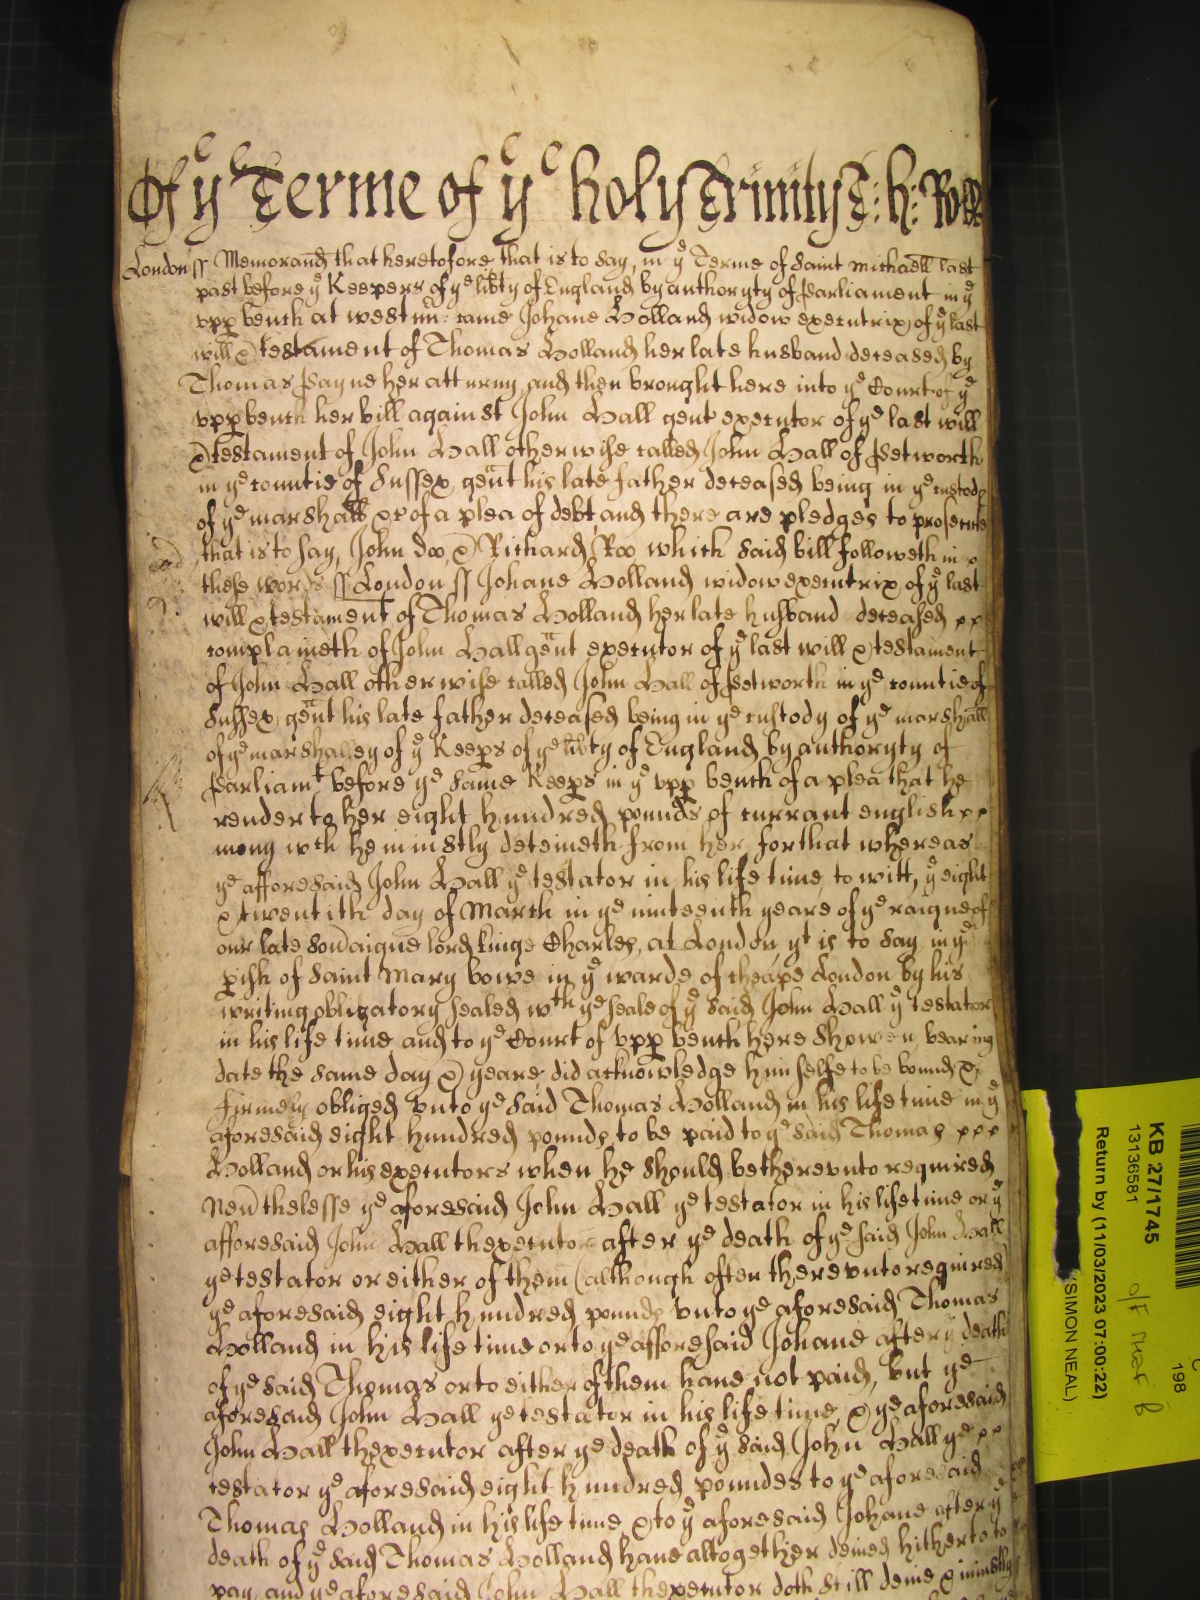 Of yᵉ Terme of yᵉ holy Trinity T: h: Roll
London ss Memorand that heretofore that is to say, in yᵉ Terme of Saint Michaell last
past before yᵉ Keepers of yᵉ libty of England by authoryty of Parliament in yᵉ
vpp bench at westm: came Johane Holland widow executrix of yᵉ last
will & testament of Thomas Holland her late husband deceased by
Thomas Payne her atturny and then brought here into yᵉ Court of yᵉ
vpp bench her bill against John Hall gent executor of yᵉ last will
& testament of John Hall otherwise called John Hall of Petworth
in yᵉ countie of Sussex gent his late father deceased being in yᵉ custody
of yᵉ marshall &c of a plea of debt and there are pledges to prosecute
that is to say, John doo & Richard Roo which said bill followeth in x
these words ss London ss Johane Holland widow executrix of yᵉ last
will & testament of Thomas Holland her late husband deceased xx
complaineth of John Hall gent executor of yᵉ last will & testament
of John Hall otherwise called John Hall of Petworth in yᵉ countie of
Sussex gent his late father deceased being in yᵉ custody of yᵉ marshall
of yᵉ marshalley of yᵉ Keeps of yᵉ libty of England by authoryty of
Parliamᵗ before yᵉ same Keeps in yᵉ vpp bench of a plea that he
render to her eight hundred pounds of currant english xx
mony wch he iniustly deteineth from her for that whereas
yᵉ afforesaid John Hall yᵉ testator in his life time, to witt, yᵉ eight
& twentith day of March in yᵉ ninteenth yeare of yᵉ raigne of
our late sovaigne lord kinge Charles, at London, yt is to say in yᵉ
pish of Saint Mary bowe in yᵉ warde of cheape London by his
writing obligatory sealed wth yᵉ seale of yᵉ said John Hall yᵉ testator
in his life time and to yᵉ Court of vpp bench here shewen, bearing
date the same day & yeare, did acknowledge himselfe to be bound &
firmely obliged vnto yᵉ said Thomas Holland in his life time in yᵉ
aforesaid eight hundred pounds, to be paid to yᵉ said Thomas xxx
Holland or his executors when he should be therevnto required
Nevthelesse yᵉ aforesaid John Hall yᵉ testator in his life time or yᵉ
afforesaid John Hall thexecutor after yᵉ death of yᵉ said John Hall
yᵉ testator or either of them (although often therevnto required)
yᵉ aforesaid eight hundred pounds vnto yᵉ aforesaid Thomas
Holland in his life time or to yᵉ afforesaid Johane after yᵉ death
of yᵉ said Thomas or to either of them haue not paid, but yᵉ
aforesaid John Hall yᵉ testator in his life time, & yᵉ aforesaid
John Hall thexecutor after yᵉ death of yᵉ said John Hall yᵉ xx
testator yᵉ aforesaid eight hundred poundes to yᵉ aforesaid
Thomas Holland in his life time, & to yᵉ aforesaid Johane after yᵉ
death of yᵉ said Thomas Holland haue altogether denied hitherto to
pay, and yᵉ aforesaid John Hall thexecutor doth still denie & iniustly
KB 27/1745
13136581
Return by (11/03/2023 07:00:22)
(SIMON NEAL)
198